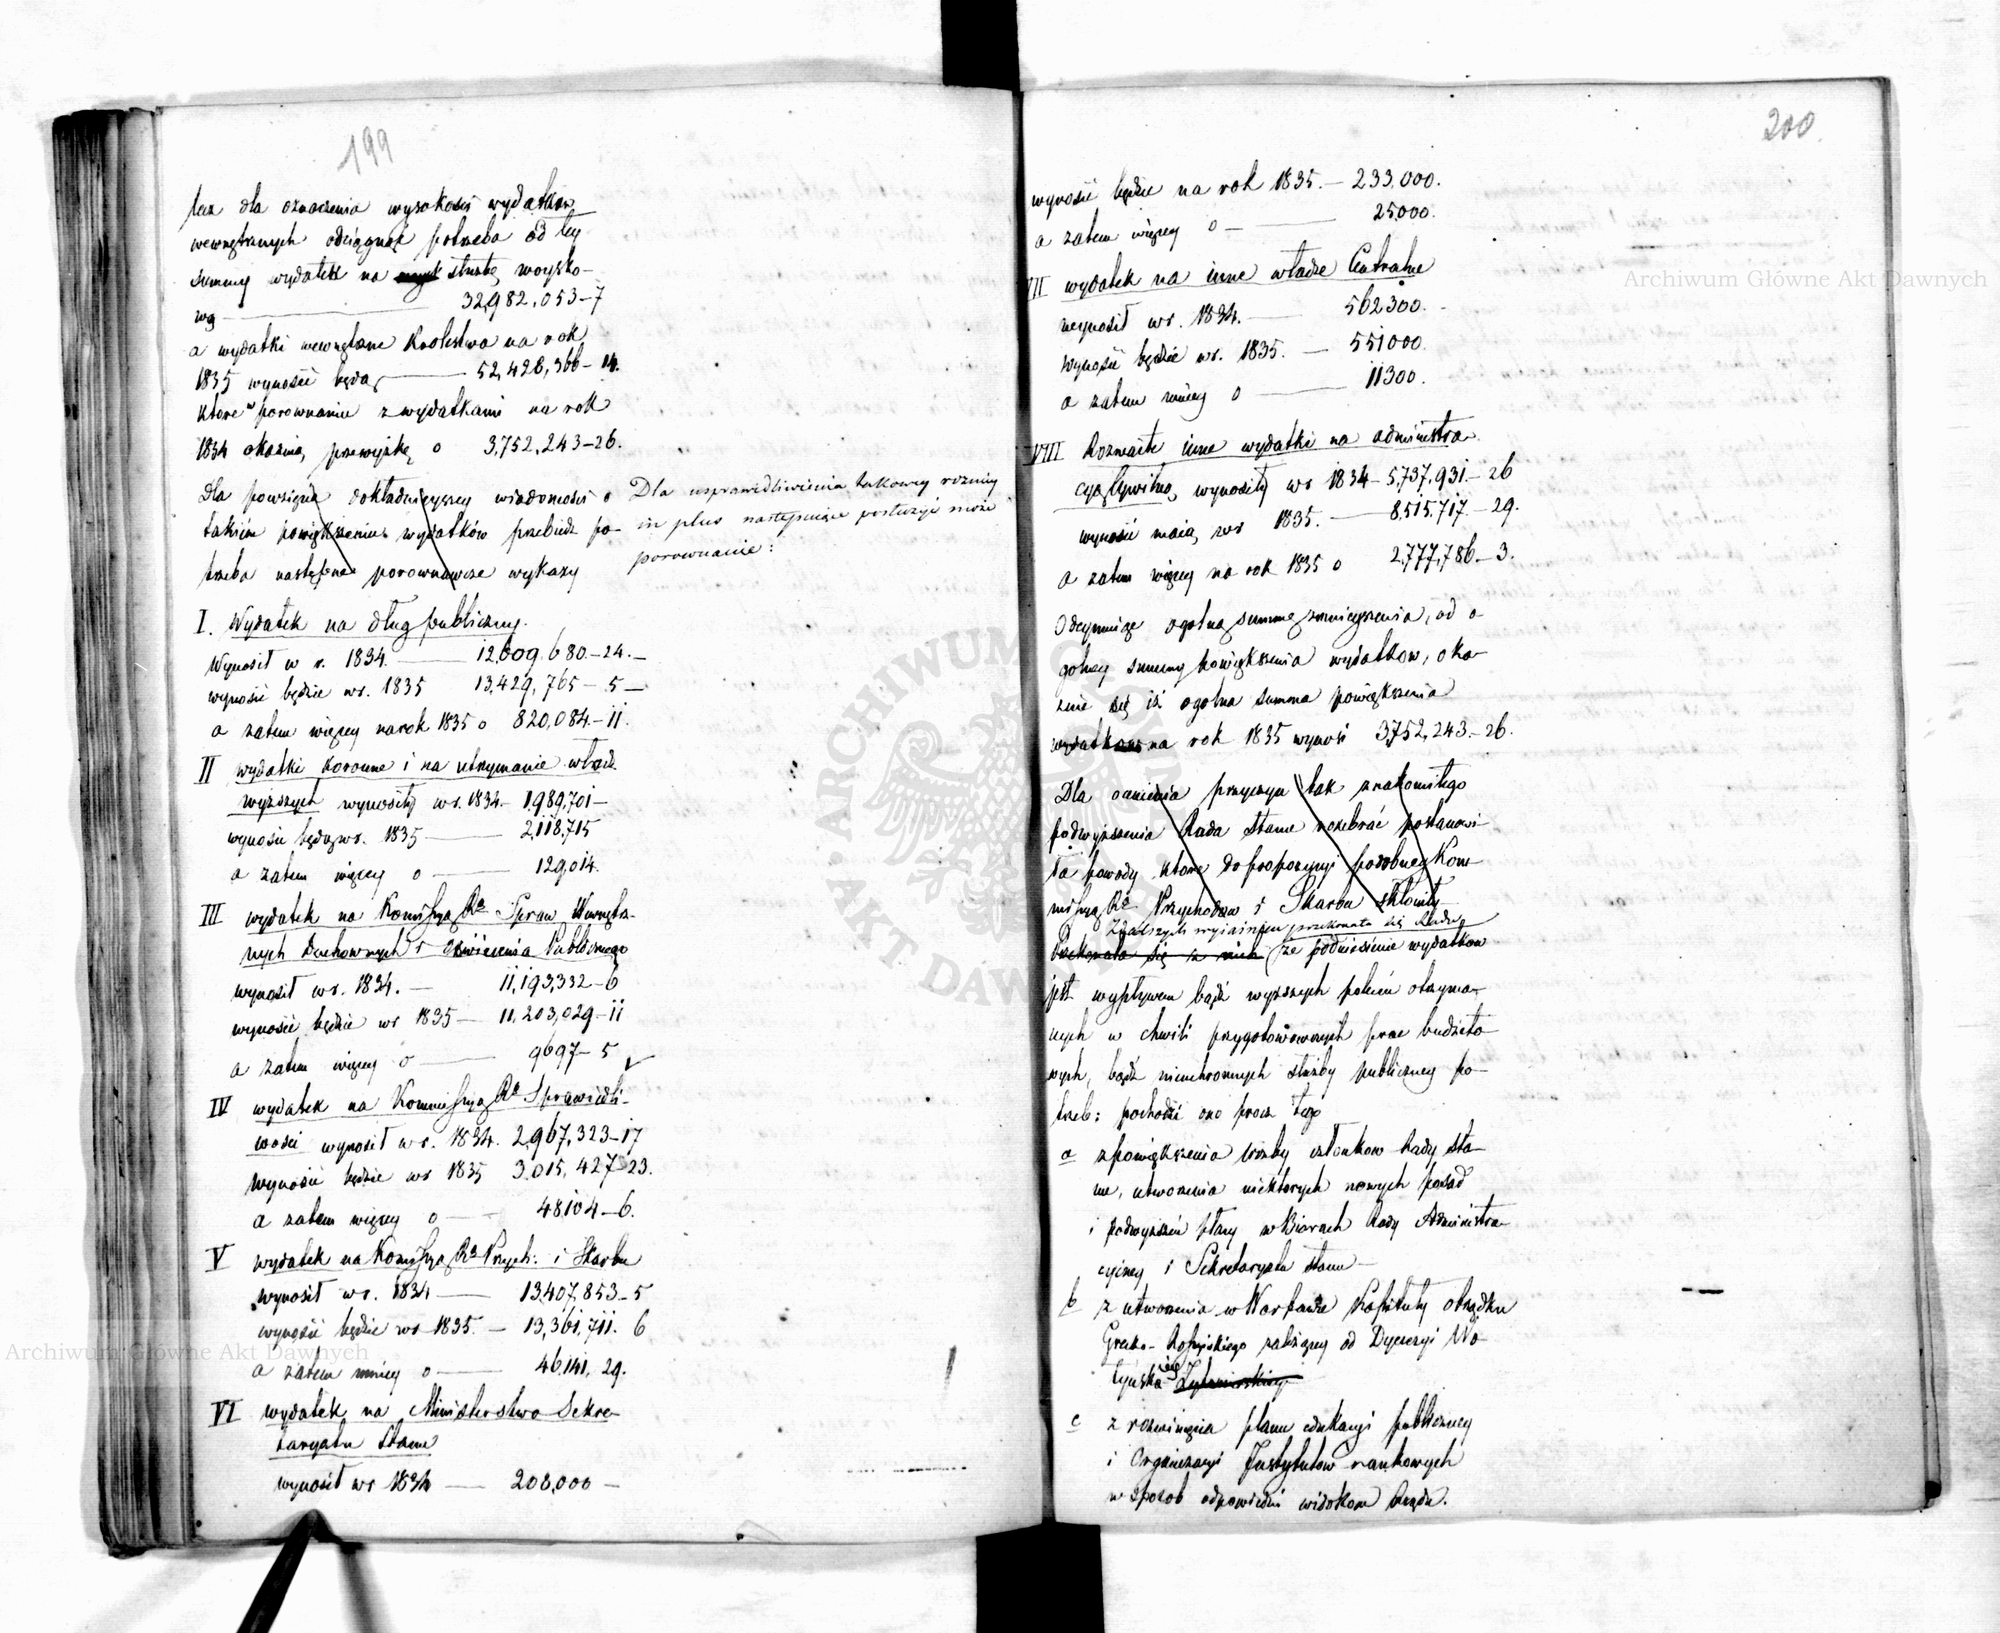 199
lecz dla oznaczenia wysokości wydatków
wewnętrznych odciągnąć potrzeba od tey
summy wydatek na służbę woysko-
wą 32,982,053-7
a wydatki wewnętrzne Królestwa na rok
1835 wynosić będą 52,428,366-14.
które w porownaniu z wydatkami na rok
1834 okazuią przewyżkę o 3,752,243-26.
Dla powzięcia dokładnieyszey wiadomości o
takiem powiększeniu wydatków przebiedz po-
trzeba następne porownawcze wykazy
Dla usprawiedliwienia takowey rożnicy
in plus następuiące posłużyć może
porownanie:
I. Wydatek na dług publiczny.
Wynosił w r. 1834. 12,609,680-24.
wynosić będzie w r. 1835 13,429,765-5
a zatem więcey na rok 1835 o 820,084-11.
II wydatki koronne i na utrzymanie władz
wyższych wynosiły w r. 1834 - 1,989,701-
wynosić będą w r. 1835 2,118,715
a zatem więcey o 129,014.
III wydatek na Kommissyą Rą Spraw Wewnętrz-
nych Duchownych i Oświecenia Publicznego
wynosił w r. 1834. - 11,193,332-6
wynosić będzie w r 1835 - 11,203,029-11
a zatem więcey o 9697-5
IV wydatek na Kommissyą Rą Sprawiedli-
wości wynosił w r. 1834. 2,967,323-17
wynosić będzie w r 1835 3,015,427-23.
a zatem więcey o 48104-6.
V wydatek na Kommissyą Rą Przych: i Skarbu
wynosił w r. 1834 13,407,853-5
wynosić będzie w r 1835. - 13,361,711. 6
a zatem mniey o 46,141,29.
VI wydatek na Ministerstwo Sekre-
taryatu Stanu
wynosił w r 1834 208,000 -
200.
wynosić będzie na rok 1835. - 233,000.
a zatem więcey o - 25,000.
VII wydatek na inne władze Centralne
wynosił w r. 1834. 562300.
wynosić będzie w r. 1835. - 551000
a zatem mniey o 11300.
VIII Rozmaite inne wydatki na administra-
cyą Cywilną wynosiły w r 1834 - 5,737,931-26
wynosić maią w r 1835. - 8,515,717-29.
a zatem więcey na rok 1835 o 2,777,786-3.
Odeymuiąc ogolną summę zmnieyszenia, od o-
golney summy powiększenia wydatkow, oka-
zuie się iż ogolna summa powiększenia
wydatkow na rok 1835 wynosi 3,752,243-26.
Dla ocenienia przyczyn tak znakomitego
podwyższenia Rada Stanu rozebrać postanowi-
ła powody które do propozycyi podobney Kom-
missyą Rą Przychodow i Skarbu skłoniły
Z dalszych wyiaśnień przekonała się Rada
Przekonała się z nich że podniesienie wydatkow
jest wypływem bądź wyższych poleceń otrzyma-
nych w chwili przygotowawczych prac budżeto-
wych, bądź nieuchronnych służby publiczney po-
trzeb: pochodzi ono procz tego
a z powiększenia liczby członkow Rady Sta-
nu, utworzenia niektorych nowych posad
i podwyższeń płacy w Biorach Rady Administra-
cyiney i Sekretaryatu Stanu -
b z utworzenia w Warszawie Kapituły obrządku
Grecko-Rossyiskiego zależącey od Dyecezyi Wo-
łyńskiey
c z rozwinięcia planu edukacyi publiczney
i Organizacyi Instytutów naukowych
w sposob odpowiedni widokom Rządu.
Archiwum Główne Akt Dawnych
Archiwum Główne Akt Dawnych
ARCHIWUM GŁÓWNE AKT DAWNYCH